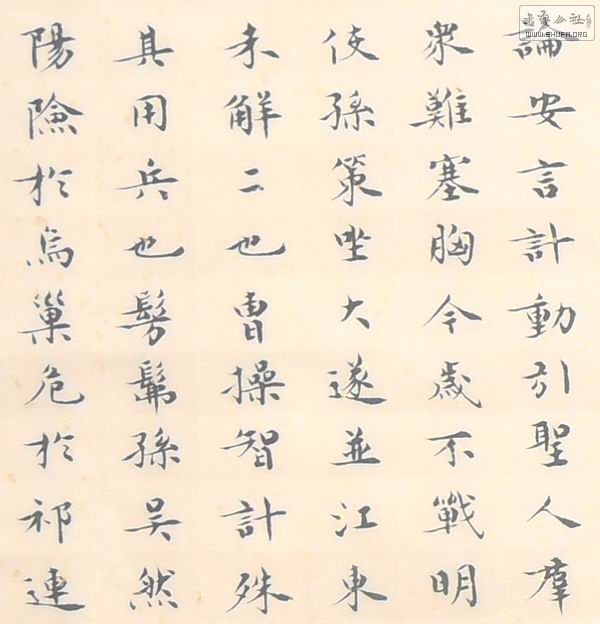 論安言計動引聖人羣
衆難塞胸今歲不戰明
使孫策坐大遂並江東
未解二也曹操智計殊
其用兵也髣髴孫吳然
陽險於烏巢危於祁連
書藝公社
WWW.SHUFA.ORG